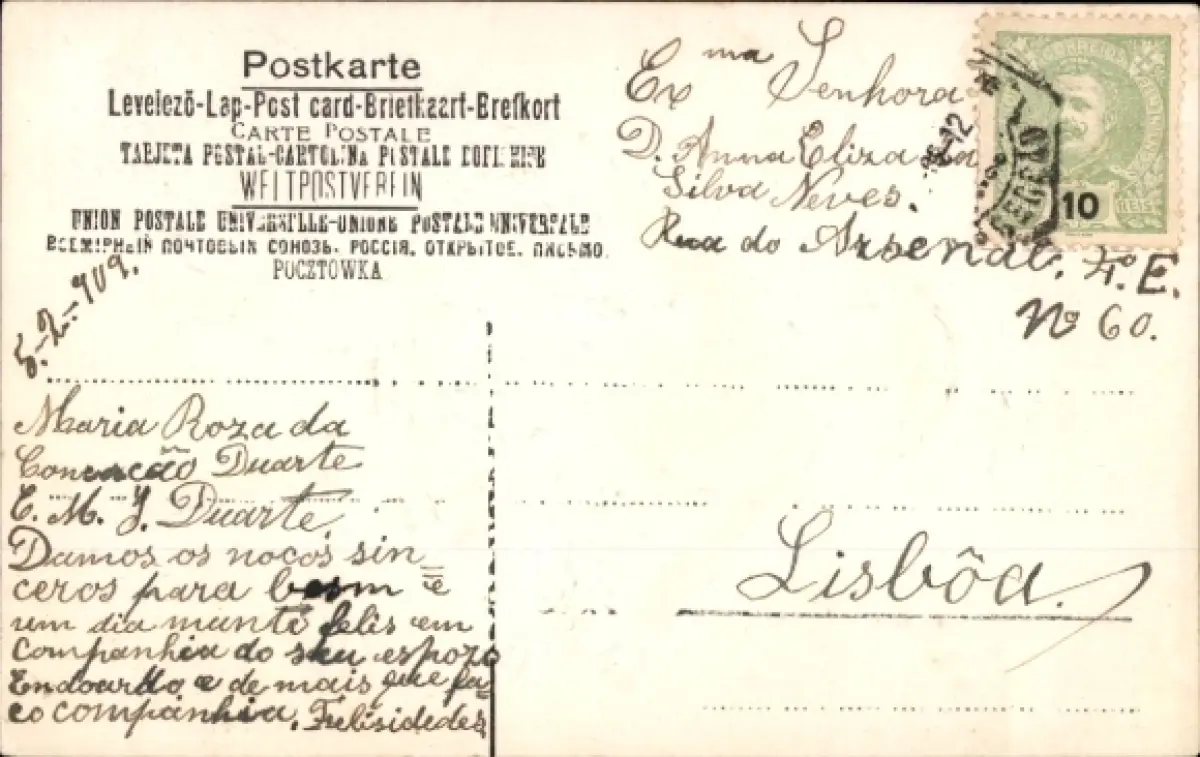 Postkarte
Levelezō-Lap-Post card-Briefkaart-Brefkort
CARTE POSTALE
TARJETA POSTAL-CARTOLINA POSTALE
WELTPOSTVEREIN
UNION POSTALE UNIVERSELLE-UNIONE POSTALE UNIVERSALE
ВСЕМІРНЫЙ ПОЧТОВЫЙ СОЮЗЪ. РОССІЯ. ОТКРЫТОЕ. ПИСЬМО.
POCZTOWKA
Ex ma Senhora
D. Anna Eliza da
Silva Neves.
Rua do Arsenal. 4º E.
Nº 60.
Lisbôa.
CORREIOS
10
REIS
5-2-909.
Maria Roza da
Duarte
E. M. J. Duarte
Damos os noços sin
ceros para bem e
um dia munto felis em
companhia do seu espozo
Endoardo e de mais que fa
ço companhia. Felisidedes